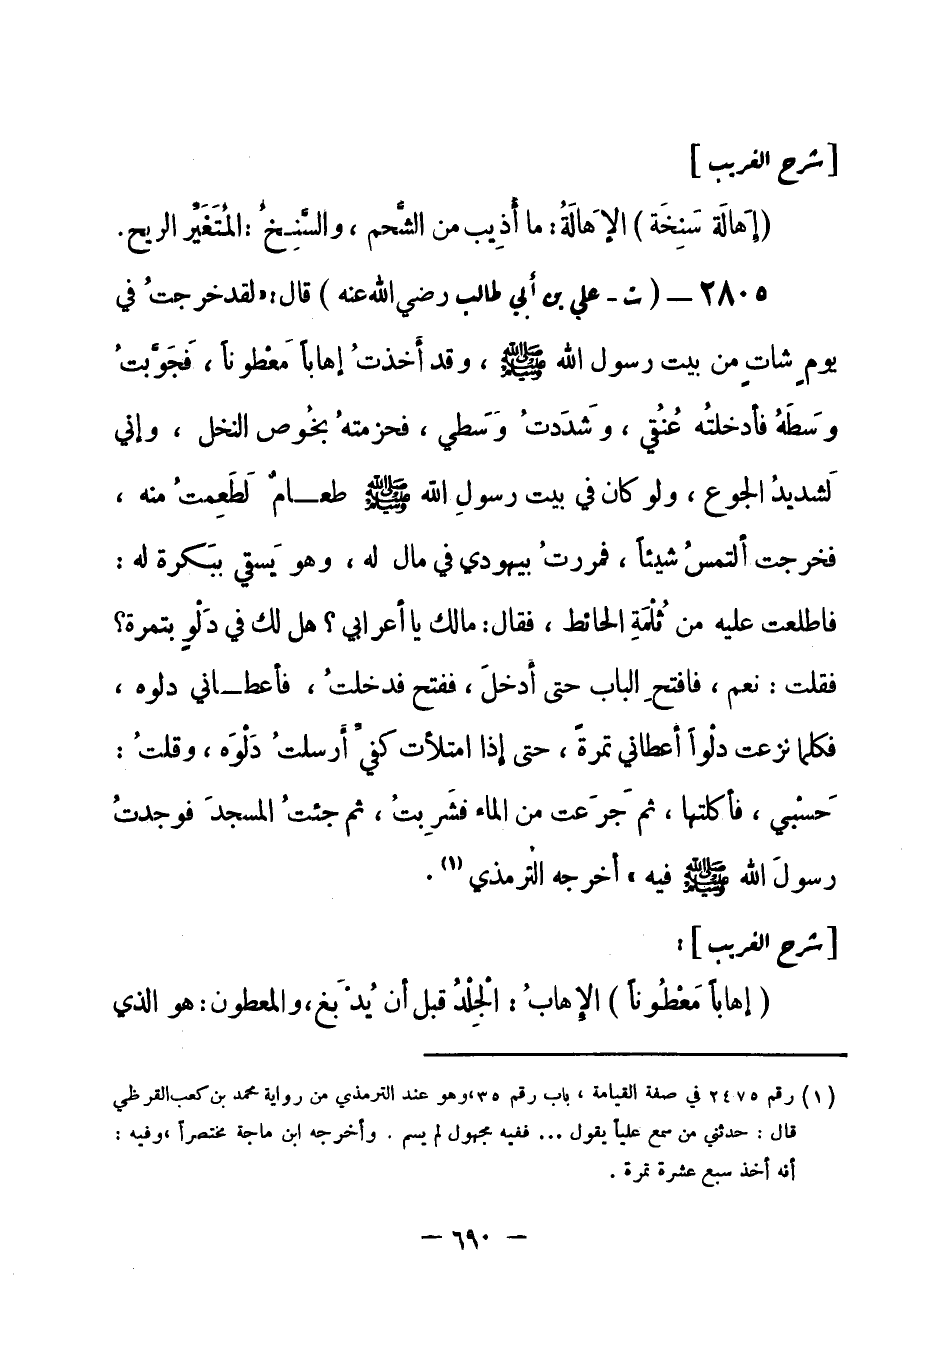 [ شرح الغريب ]
( إِهالَة سَنِخَة ) الإهَالَةُ : ما أُذِيب من الشَّحم ، والسَّنِخُ : المُتَغَيِّرُ الريح .
٢٨٠٥ – ( ت - علي بن أبي طالب رضي الله عنه ) قال : « لقد خرجتُ في
يومٍ شاتٍ من بيت رسول الله ﷺ ، وقد أخذتُ إهاباً مَعْطوناً ، فَجَوَّبتُ
وَسَطَهُ فأدخلتُه عُنُقي ، وشَدَدتُ وَسَطي ، فحزمتهُ بخُوص النخل ، وإني
لَشديدُ الجوع ، ولو كان في بيت رسولِ الله ﷺ طعـــامٌ لَطَعِمتُ منه ،
فخرجت ألتمسُ شيئاً ، فمررتُ بيهودي في مال له ، وهو يَسقي ببَكرة له :
فاطلعت عليه من ثُلْمَةِ الحائط ، فقال : مالك يا أعرابي ؟ هل لك في دَلْوٍ بتمرة ؟
فقلت : نعم ، فافتحِ الباب حتى أدخلَ ، ففتح فدخلتُ ، فأعطـــاني دلوه ،
فكلما نزعت دلْواً أعطاني تمرةً ، حتى إذا امتلأت كفيِّ أَرسلتُ دَلْوَه ، وقلتُ :
حَسْبي ، فأكلتها ، ثم جَرَعت من الماء فشَرِبتُ ، ثم جئتُ المسجدَ فوجدتُ
رسولَ الله ﷺ فيه » أخرجه الترمذي (١) .
[ شرح الغريب ] :
( إهاباً مَعْطُوناً ) الإهابُ : الْجِلْدُ قبل أن يُدْبَغ ، والمعطون : هو الذي
(١) رقم ٢٤٧٥ في صفة القيامة ، باب رقم ٣٥ ، وهو عند الترمذي من رواية محمد بن كعب القرظي
قال : حدثني من سمع علياً يقول ... ففيه مجهول لم يسم . وأخرجه ابن ماجة مختصراً ، وفيه :
أنه أخذ سبع عشرة تمرة .
– ٦٩٠ –